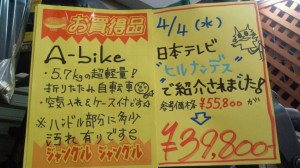 お買得品
A-bike
・5.7kgの超軽量!
折りたたみ自転車
・空気入れ&ケース付です
※ハンドル部分に多少
汚れ有りです
ジャングル ジャングル
4/4(水)
日本テレビ
"ヒルナンデス"
で紹介されました!
参考価格 ¥55,800が
¥39,800-